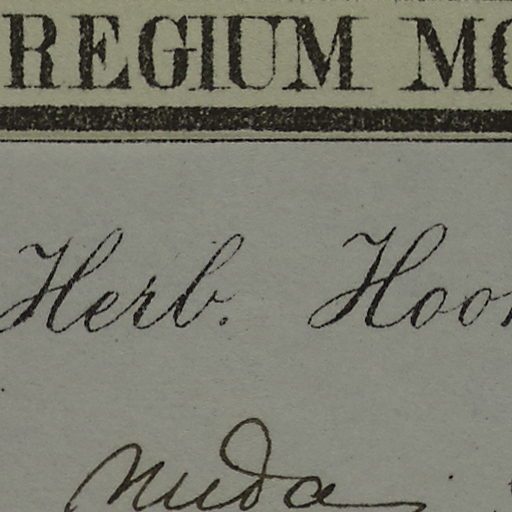 REGIUM MO
Herb. Hook
nuda